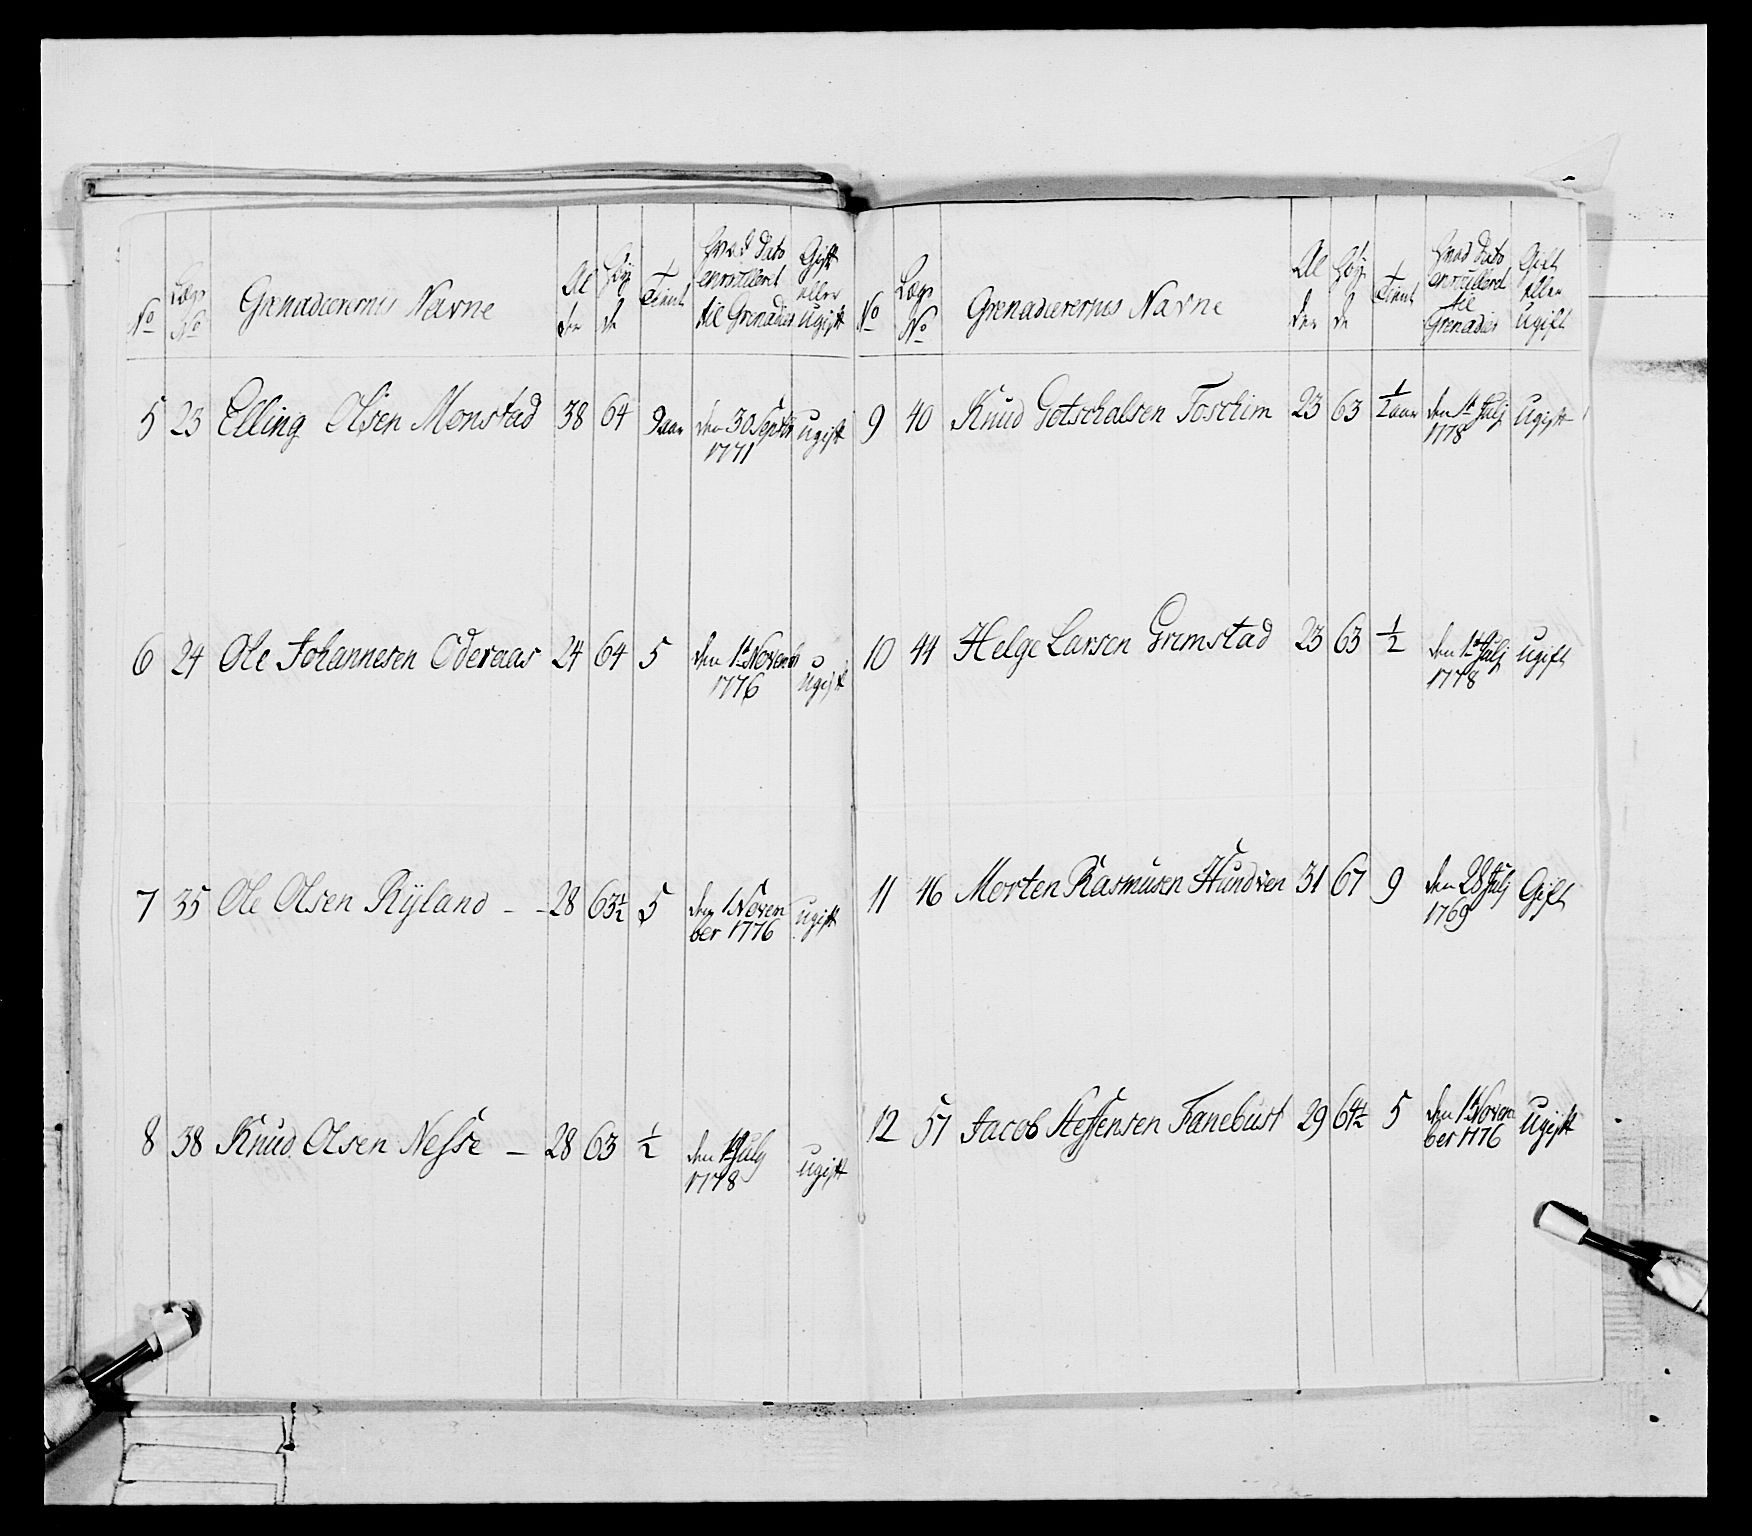 No Lægs No Grenadierernes Navne Alder Høyde Tient hvad Dato enroulleret til Grenadier Gift eller Ugift
5 23 Elling Olsen Monstad 38 64 9 aar den 30 Septbr 1771 Ugift
6 24 Ole Johannesen Oderaas 24 64 5 den 1t Novemb 1776 Ugift
7 35 Ole Olsen Rÿland - - 28 63½ 5 den 1 November 1776 Ugift
8 38 Knud Olsen Nesse - 28 63 ½ den 1t July 1778 Ugift
No Lægs No Grenadierernes Navne Alder Høyde Tient hvad Dato enroulleret til Grenadier Gift eller Ugift
9 40 Knud Gotschalsen Toschim 23 63 ½ aar den 1t Julj 1778 Ugift
10 44 Helge Larsen Grimstad 23 63 ½ den 1t Julj 1778 Ugift
11 46 Morten Rasmusen Hundven 31 67 9 den 28 Julj 1769 Gift
12 51 Jacob Steffensen Fanebust 29 64½ 5 den 1t November 1776 Ugift